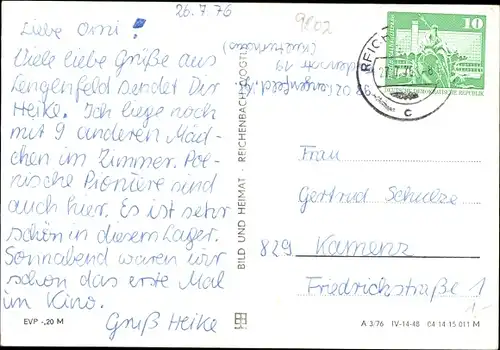 26.7.76
9802
Liebe Omi!
Viele liebe Grüße aus
Lengenfeld sendet Dir
Heike. Ich liege noch
mit 9 anderen Mäd-
chen im Zimmer. Pol-
nische Pioniere sind
auch hier. Es ist sehr
schön in diesem Lager.
Sonnabend waren wir
schon das erste Mal
im Kino.
Gruß Heike
EVP -,20 M
BILD UND HEIMAT · REICHENBACH (VOGTL)
98 02 Lengenfeld
REICH
c
10
DEUTSCHE DEMOKRATISCHE REPUBLIK
Frau
Gertrud Schulze
829 Kamenz
Friedrichstraße 1
1.-
A 3/76 IV-14-48 04 14 15 011 M